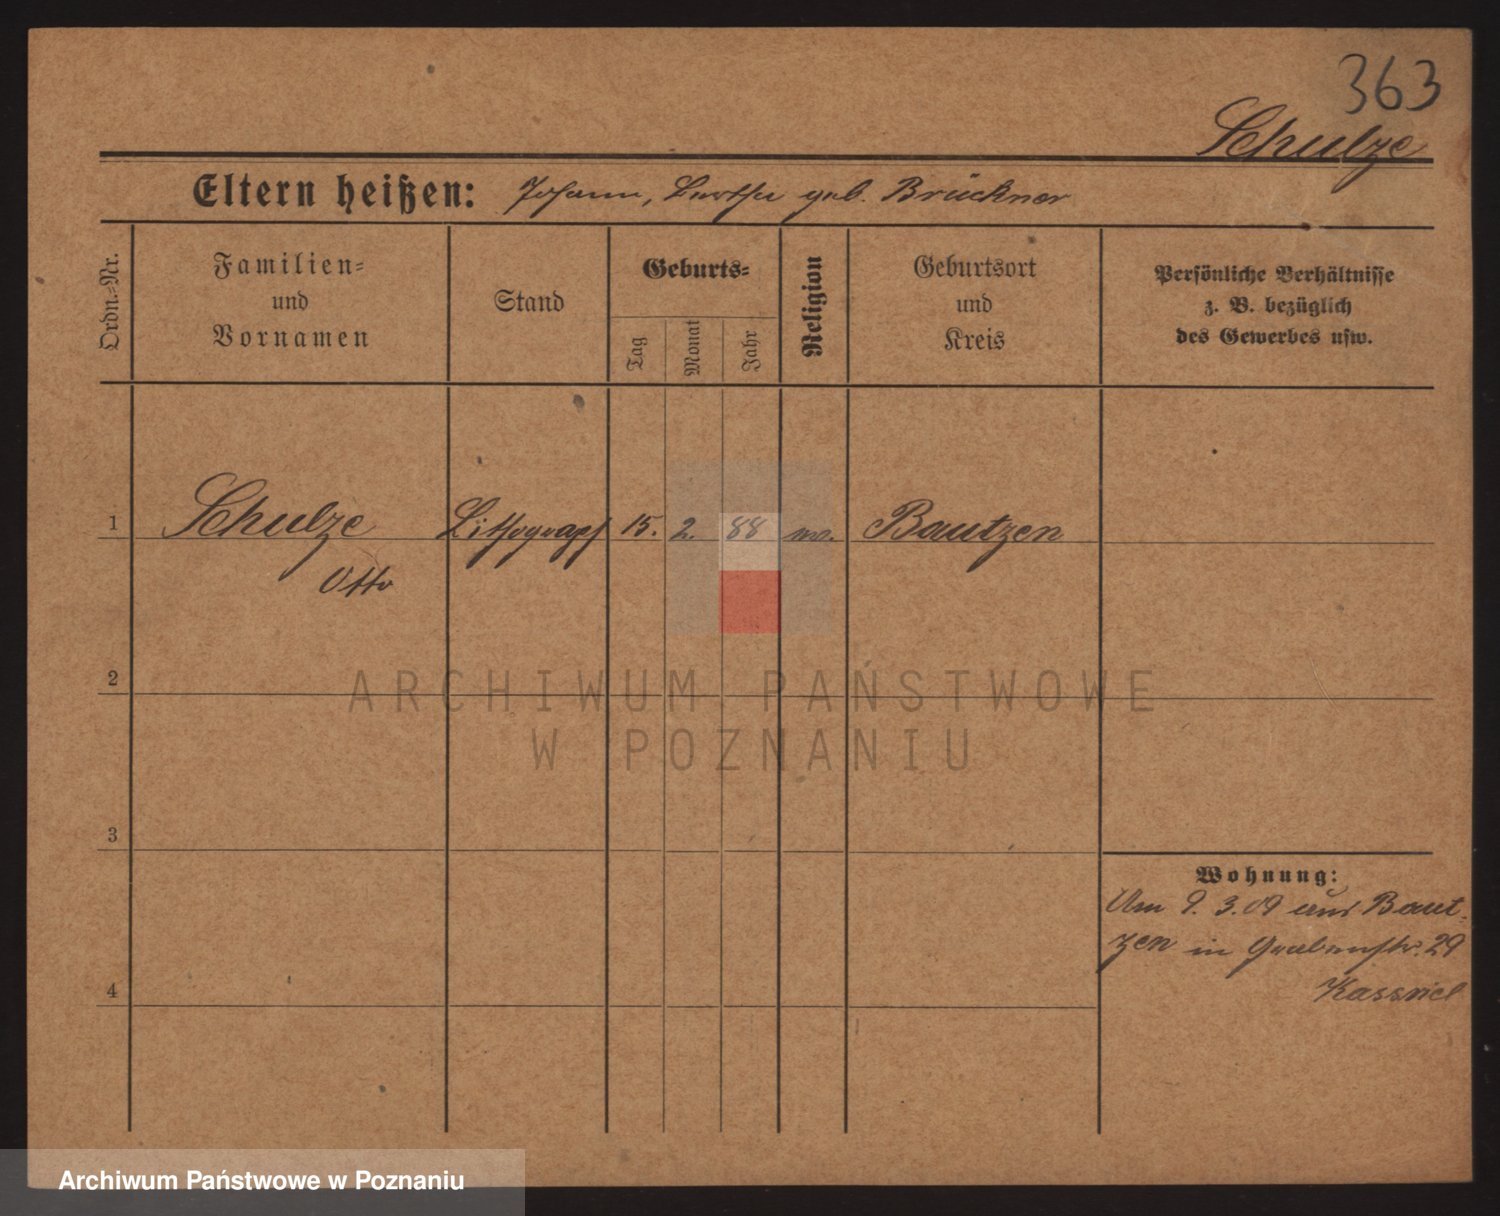 363
Schulze
Eltern heißen: Johann, Bertha geb. Brückner
Ordn.-Nr.
Familien-
und
Vornamen
Stand
Geburts-
Tag
Monat
Jahr
Religion
Geburtsort
und
Kreis
Persönliche Verhältnisse
z. B. bezüglich
des Gewerbes usw.
1 Schulze Lithograph 15. 2. 88 ev. Bautzen
Otto
2
3
4
Wohnung:
Am 9. 3. 09 aus Baut-
zen in Grabenstr. 29
ARCHIWUM PAŃSTWOWE
W POZNANIU
Archiwum Państwowe w Poznaniu